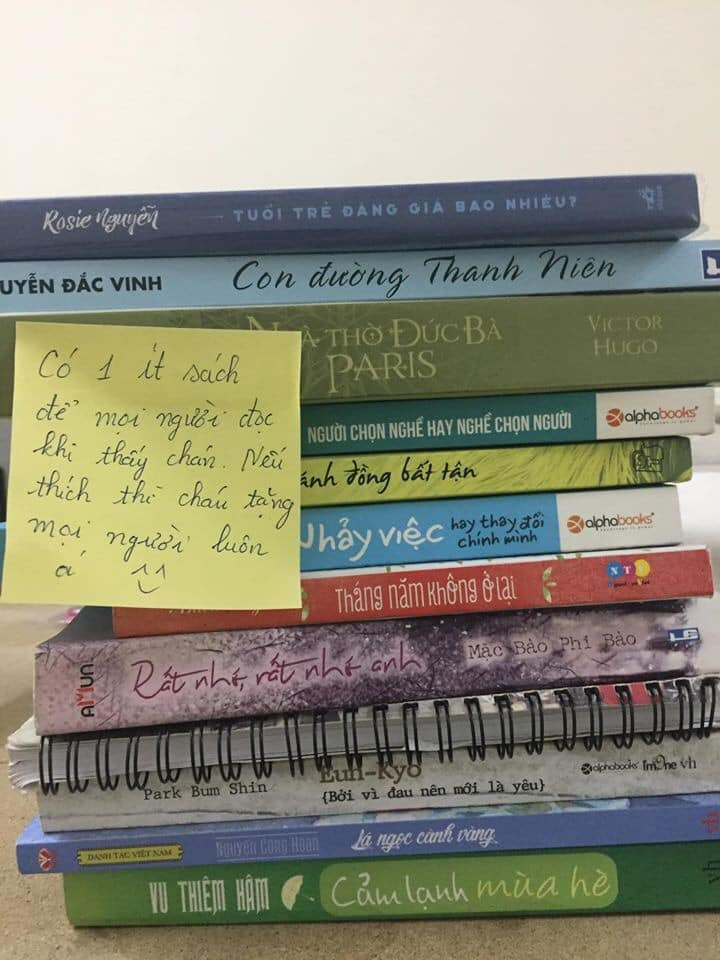 Rosie Nguyễn TUỔI TRẺ ĐÁNG GIÁ BAO NHIÊU?
UYỄN ĐẮC VINH Con đường Thanh Niên
NHÀ THỜ ĐỨC BÀ PARIS VICTOR HUGO
Có 1 ít sách
để mọi người đọc
khi thấy chán. Nếu
thích thì cháu tặng
mọi người luôn
á ^^
NGƯỜI CHỌN NGHỀ HAY NGHỀ CHỌN NGƯỜI alphabooks
ánh đồng bất tận
Nhảy việc hay thay đổi chính mình alphabooks
Tháng năm không ở lại
AMUN Rất nhớ, rất nhớ anh Mặc Bảo Phi Bảo
Park Bum Shin Eun-Kyo {Bởi vì đau nên mới là yêu} alphabooks
DANH TÁC VIỆT NAM Nguyễn Công Hoan Lá ngọc cành vàng
VU THIÊM HÂM Cảm lạnh mùa hè